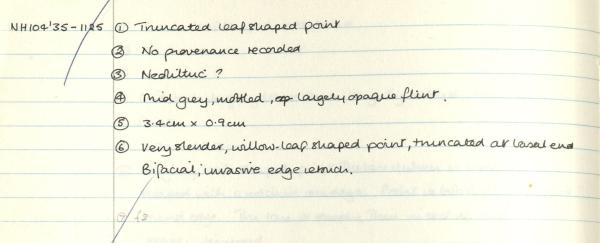 NH104'35-1125 ① Truncated leaf shaped point
② No provenance recorded
③ Neolithic ?
④ Mid grey, mottled, largely opaque flint.
⑤ 3.4cm x 0.9cm
⑥ Very slender, willow-leaf shaped point, truncated at basal end
Bifacial, invasive edge retouch.
⑦ f3